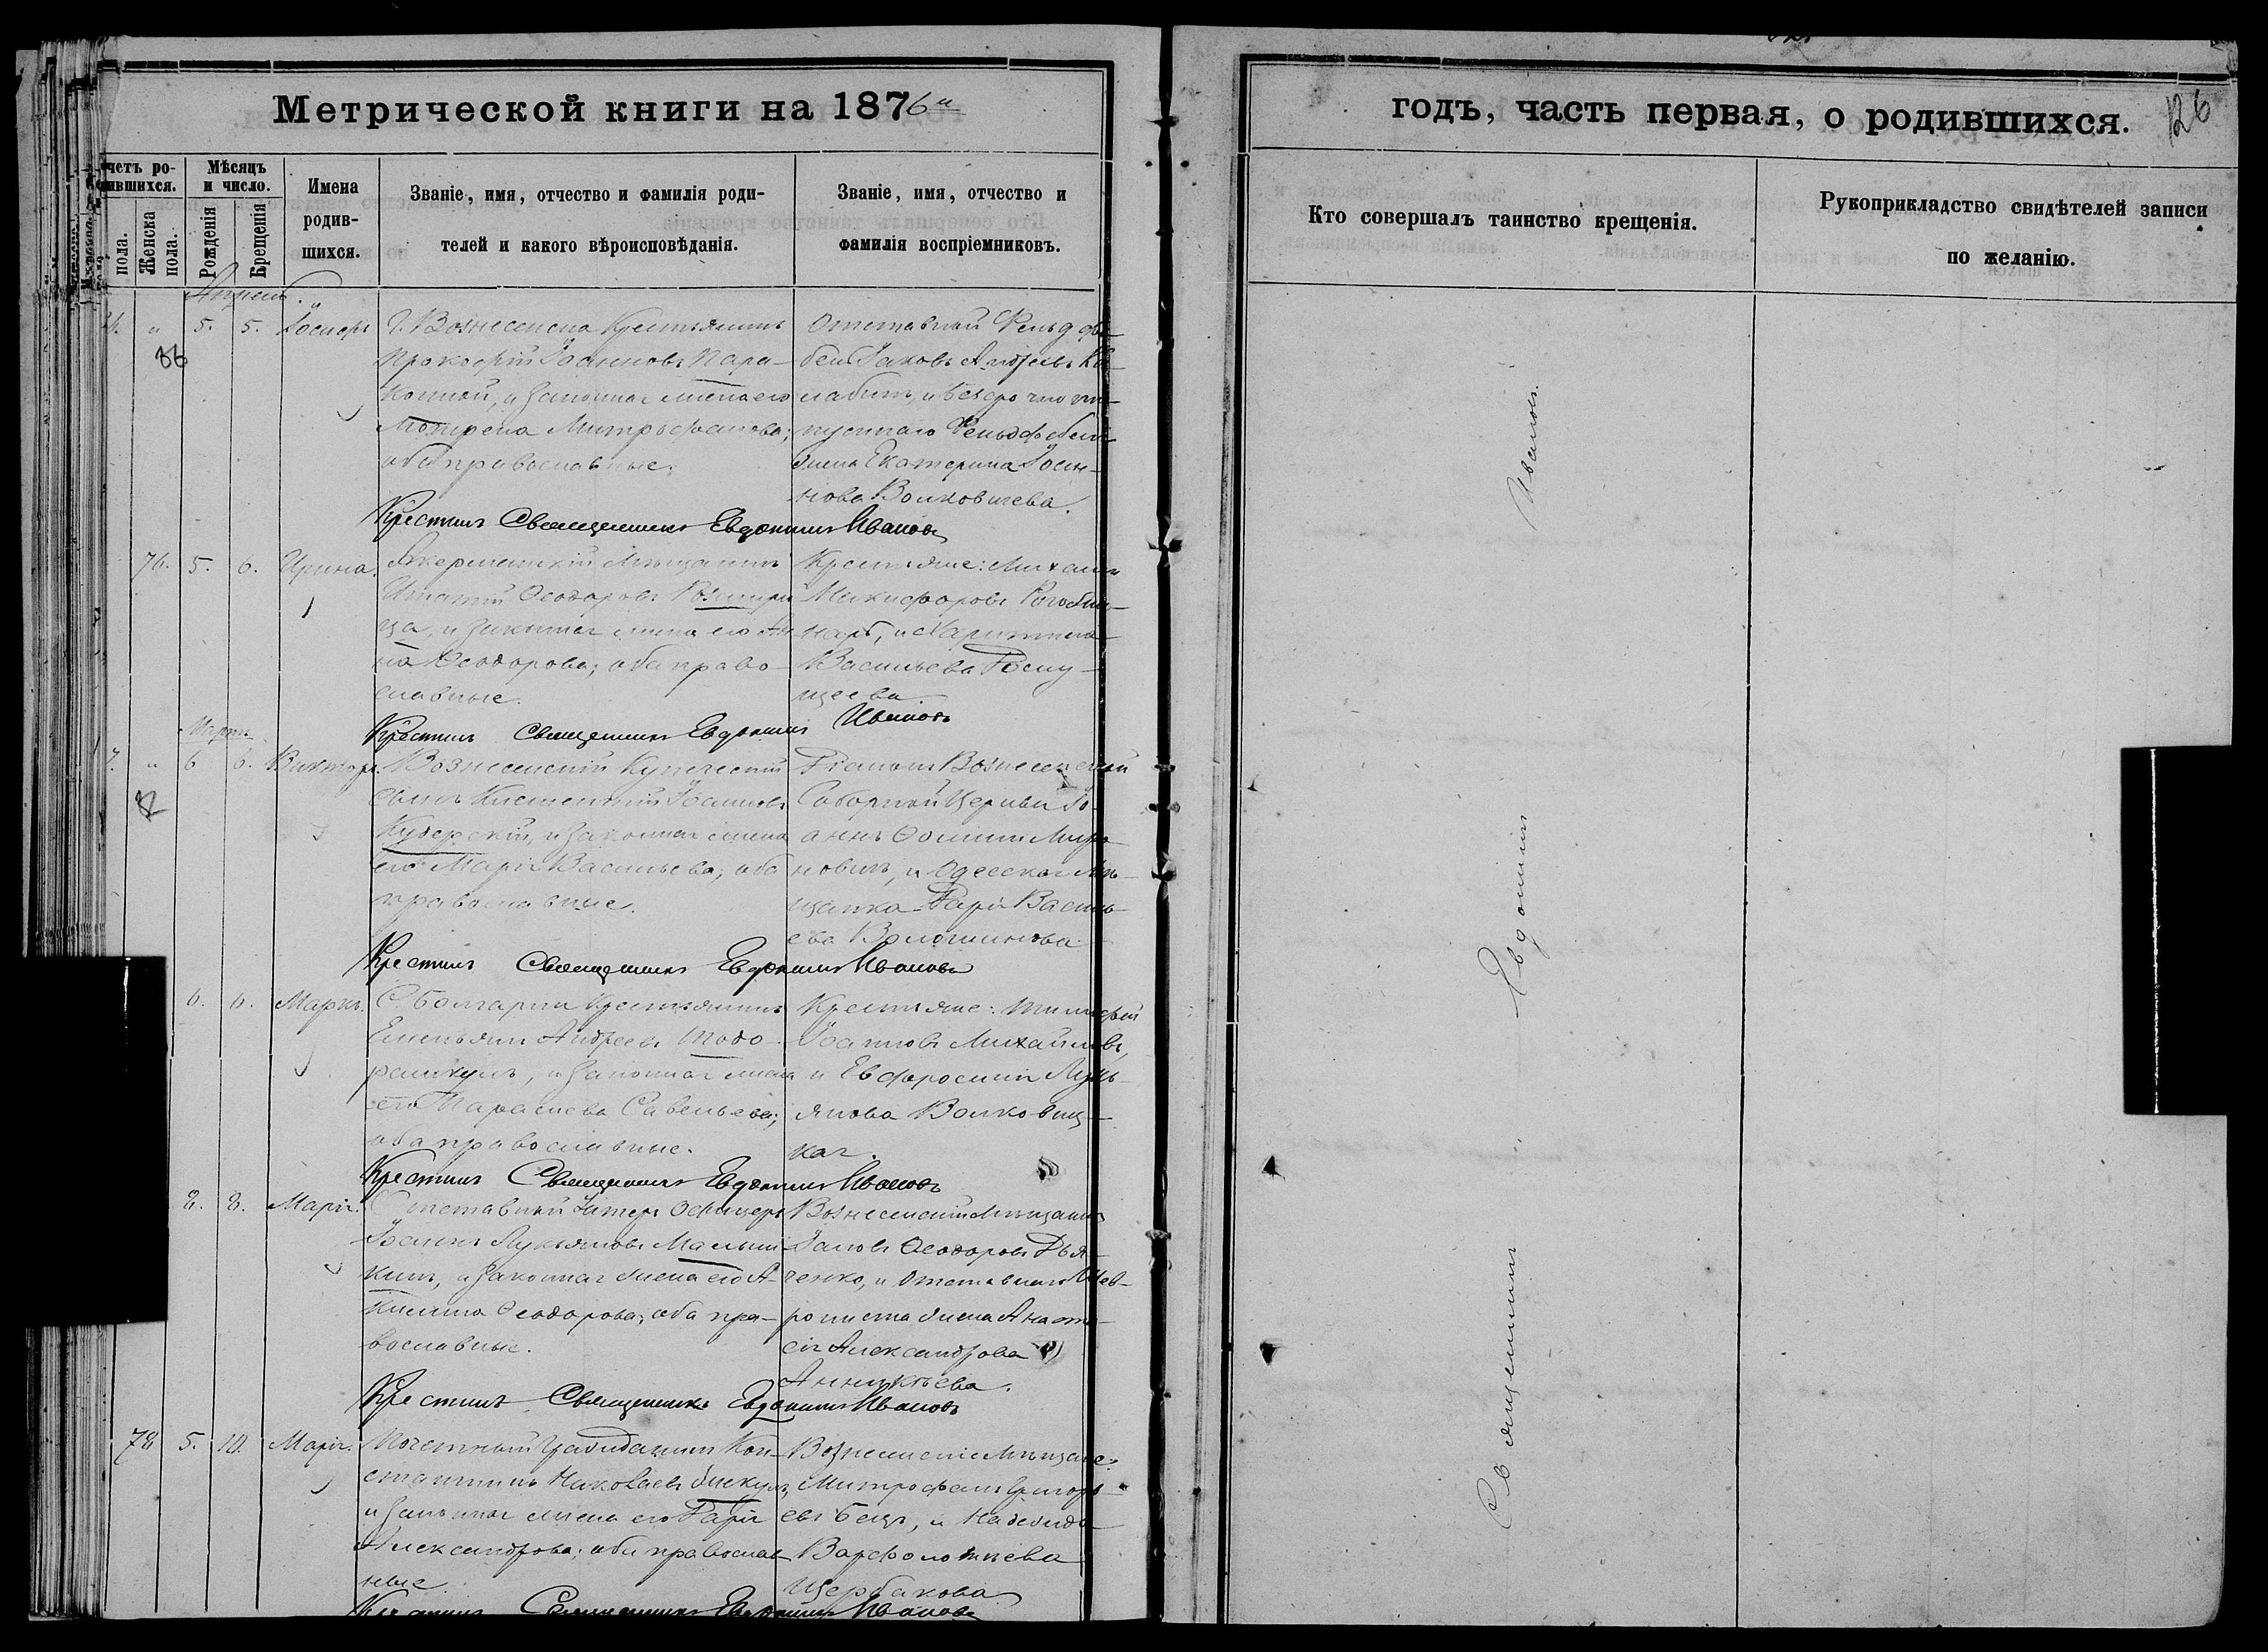 Метрической книги на 1876й
годъ, часть первая, о родившихся.
126
четъ ро-
дившихся.
Мѣсяцъ
и число.
пола.
Женска
пола.
Рожденія
Крещенія
Имена
родив-
шихся.
Званіе, имя, отчество и фамилія роди-
телей и какого вѣроисповѣданія.
Званіе, имя, отчество и
фамилія воспріемниковъ.
Кто совершалъ таинство крещенія.
Рукоприкладство свидѣтелей записи
по желанію.
Апрель.
" 5. 5. Іосифъ
36
Г. Вознесенска Крестьянинъ
Прокофій Іоанновъ Пара-
конный, и законная жена его
Мотрена Митрофанова;
оба православные.
Отставной Фельдфе-
бель Іаковъ Андреевъ
и безсрочно от-
пускнаго Фельдфебеля
жена Екатерина Іоан-
нова Волковичева.
Крестилъ Священникъ Евдокимъ Ивановъ
76. 5. 6. Ирина.
Аккерманскій Мѣщанинъ
Игнатій Ѳеодоровъ
ца, и законная жена его Ан-
на Ѳеодорова; оба право-
славные.
Крестьяне: Михаилъ
Никифоровъ
и Харитина
Васильева
щеева
Крестилъ Священникъ Евдокимъ Ивановъ
Мартъ
7. " 6 6. Викторъ.
Вознесенскій Купеческій
сынъ Іоанновъ
Кудерскій, и законная жена
его Марія Васильева; оба
православные.
Діаконъ Вознесенской
Соборной Церкви Іо-
аннъ Ѳоминъ Миро-
новичъ, и Одесская Мѣ-
щанка Дарія Василь-
ева Волошинова.
Крестилъ Священникъ Евдокимъ Ивановъ
6. 6. Маркъ.
С. Болгарки Крестьянинъ
Емельянъ Андреевъ Тодо-
рашкулъ, и законная жена
его Параскева Савельева;
оба православные.
Крестьяне: Тимофей
Іоанновъ Михайловъ,
и Евфросинія Лукь-
янова Волковиц-
кая.
Крестилъ Священникъ Евдокимъ Ивановъ
8. 8. Марія.
Отставный Унтеръ Офицеръ
Іоаннъ Лукьяновъ Малыш-
кинъ, и законная жена его А-
килина Ѳеодорова; оба пра-
вославные.
Вознесенскій Мѣщанинъ
Іаковъ Ѳеодоровъ Дья-
ченко, и Отставнаго
жена Анаста-
сія Александрова
Крестилъ Священникъ Евдокимъ Ивановъ
78 5. 10. Марія.
Почетный Гражданинъ Кон-
стантинъ Николаевъ
и законная жена его Дарія
Александрова; оба православ-
ные.
Вознесенскіе Мѣщане:
Митрофанъ Григорь-
евъ Бецъ, и Надежда
Варфоломѣева
Щербакова.
Крестилъ Священникъ Евдокимъ Ивановъ
Священникъ Евдокимъ Ивановъ.